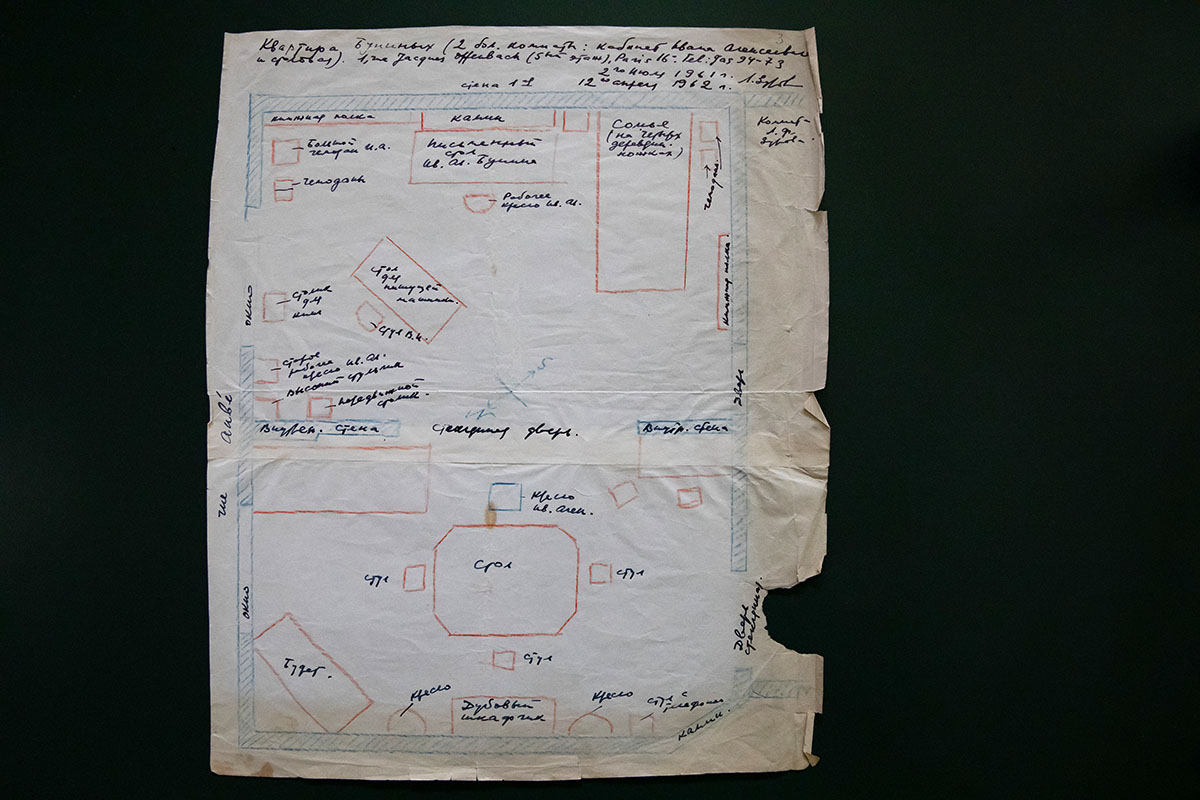 3
Квартира Буниных (2 бол. комнаты: кабинет Ивана Алексеевича
и столовая). 1, rue Jacques Offenbach (5ый этаж), Paris 16e. Tel: Jas 94-73
2го июля 1961 г. Л. Зуров
стена 1я 12го апреля 1962 г.
книжная полка
камин
Большой
чемодан И.А.
чемоданы
Письменный
стол
Ив. Ал. Бунина
Рабочее
кресло Ив. Ал.
Сомье
(на четырех
деревян.
ножках)
чемоданы
Комнат.
Л. Ф.
Зурова
книжная полка.
Стол
для
пишущей
машинки.
Стул В.Н.
Столик
для
книг
окно
Старое
рабочее
кресло Ив. Ал.
Высокий стульчик
передвижной
столик.
Дверь
Внутрен. стена
Стеклянная дверь.
Внутр. стена
Кресло
Ив. Алек.
Стол
стул
стул
стул
окно
Буфет.
Кресло
Дубовый
шкафчик
Кресло
стул с
телефоном
камин.
Дверь
стеклянная.